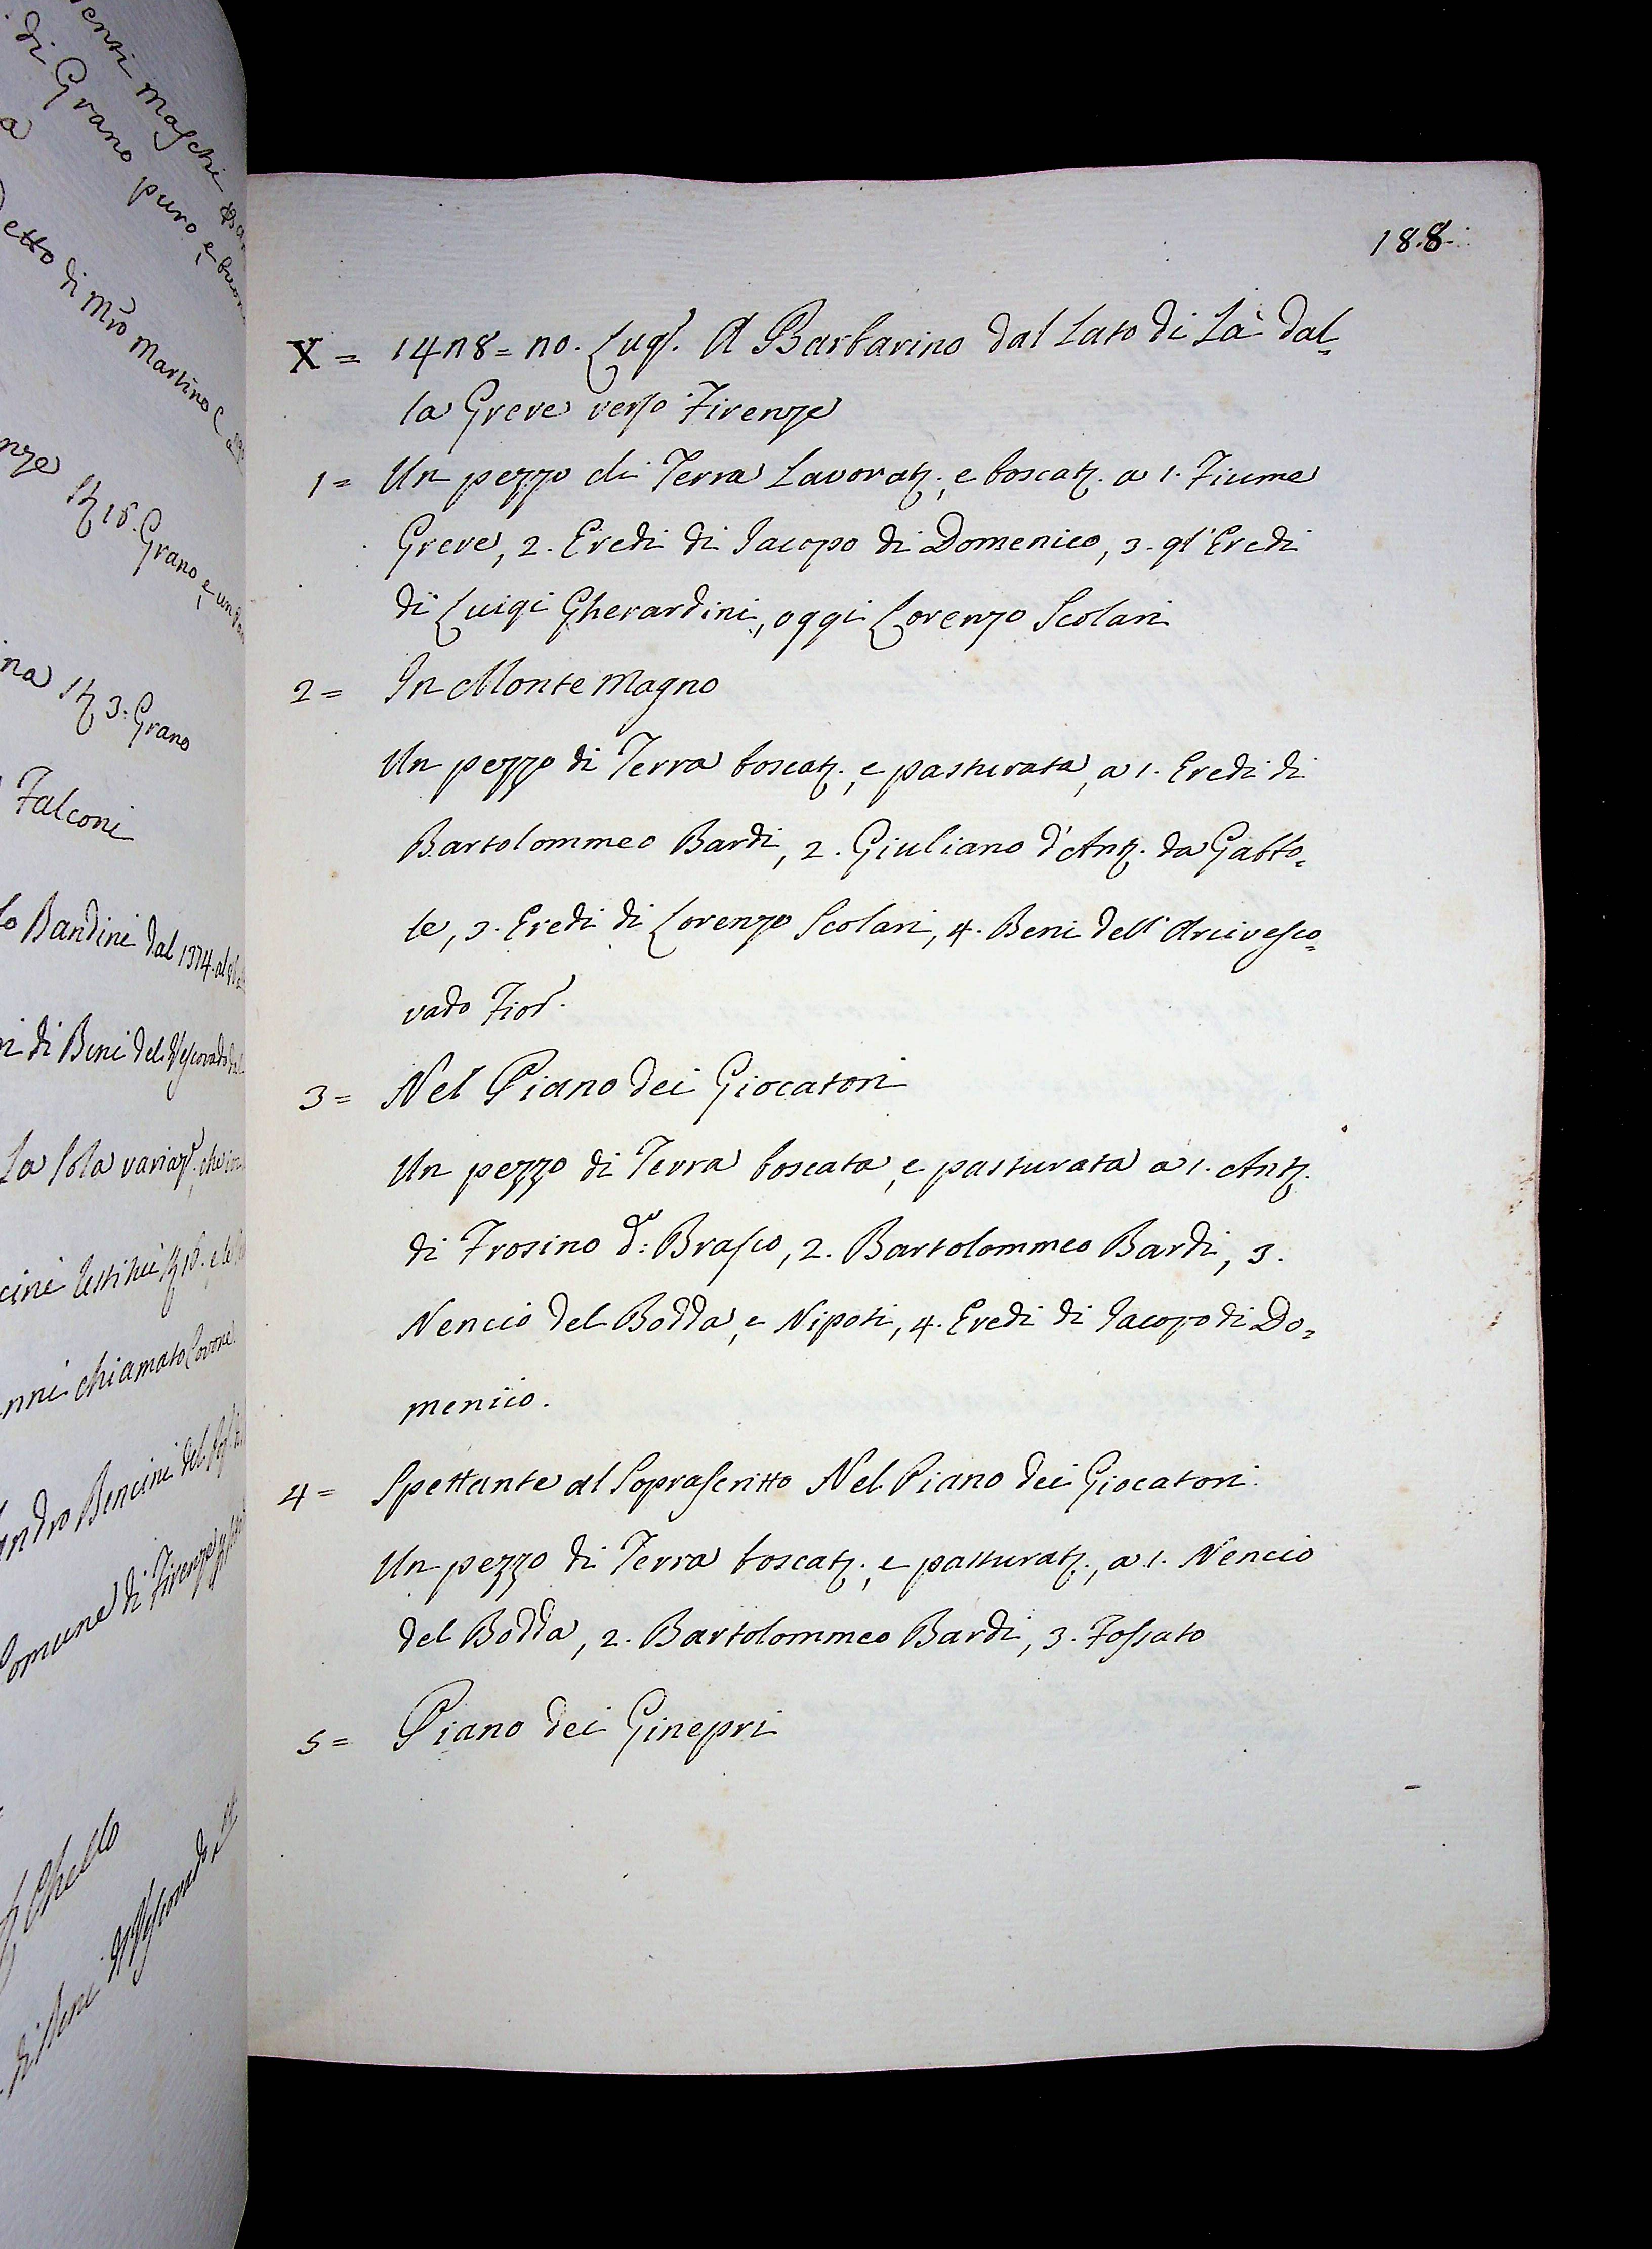 188.
X = 14n8 = no. Lugl. A Barbarino dal Lato di Là dal=
la Greve verso Firenze
1 = Un pezzo di Terra Lavorat., e boscat. a 1. Fiume
Greve, 2. Eredi di Jacopo di Domenico, 3. gl' Eredi
di Luigi Gherardini, oggi Lorenzo Scolari
2 = In Monte Magno
Un pezzo di Terra boscat., e pasturata, a 1. Eredi di
Bartolommeo Bardi, 2. Giuliano d'Ant. da Gabbo=
le, 3. Eredi di Lorenzo Scolari, 4. Beni dell' Arcivesco=
vado Fior.
3 = Nel Piano dei Giocatori
Un pezzo di Terra boscata, e pasturata a 1. Ant.
di Frosino d.º Brasco, 2. Bartolommeo Bardi, 3.
Nencio del Bodda, e Nipoti, 4. Eredi di Jacopo di Do=
menico.
4 = Spettante al Soprascritto Nel Piano dei Giocatori.
Un pezzo di Terra boscat., e pasturat., a 1. Nencio
del Bodda, 2. Bartolommeo Bardi, 3. Fossato
5 = Piano dei Ginepri
di Grano puro, e buon
etto di Mro Martino
Grano, e un
3. Grano
Falconi
Bandini dal 1374. al
di Beni del Vescovado
La sola variaz.e, che
nni chiamato Covone
ndro Bencini del
Comune di Firenze
Chello
di Beni del Vescovado